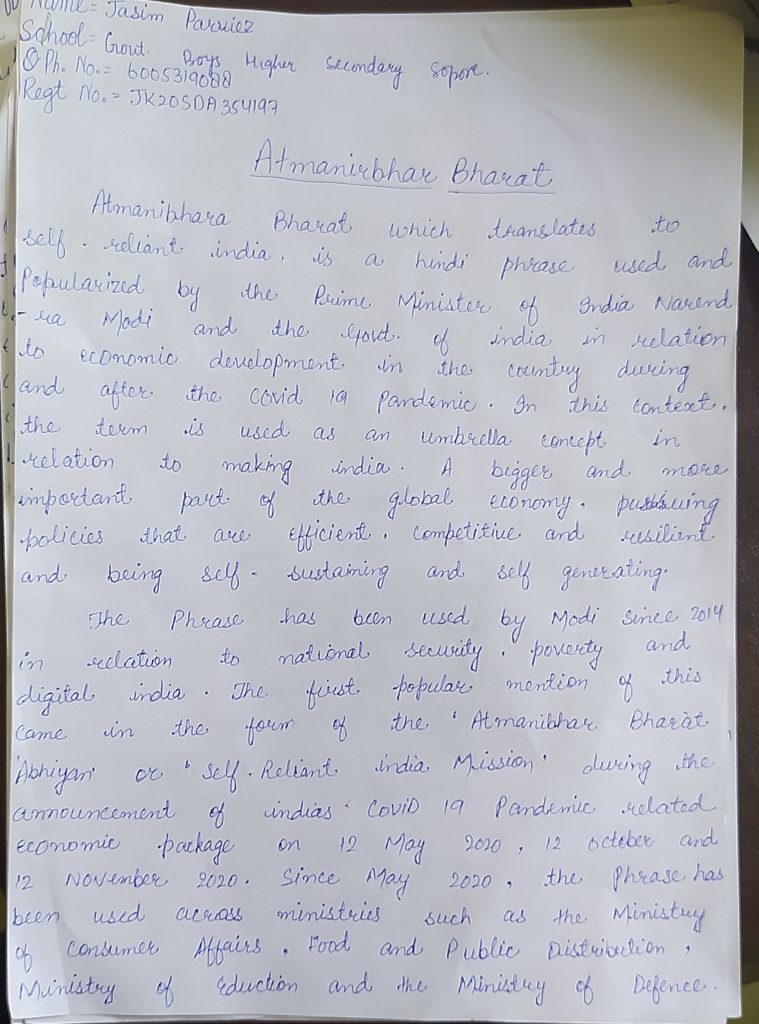 Name = Jasim Parviez
School = Govt. Boys Higher secondary sopore.
Ph. No. = 6005319088
Regt No. = JK20SDA354197
Atmanirbhar Bharat
Atmanibhara Bharat which translates to
self - reliant india, is a hindi phrase used and
Popularized by the Prime Minister of India Narend
-ra Modi and the Govt. of india in relation
to economic development in the country during
and after the covid 19 pandemic. In this context,
the term is used as an umbrella concept in
relation to making india. A bigger and more
important part of the global economy, pursuing
policies that are efficient, competitive and resilient
and being self- sustaining and self generating.
The Phrase has been used by Modi since 2014
in relation to national security, poverty and
digital india. The first popular mention of this
came in the form of the 'Atmanibhar Bharat
Abhiyan' or 'self-Reliant india Mission' during the
announcement of indias COVID 19 Pandemic related
economic package on 12 May 2020, 12 october and
12 November 2020. Since May 2020, the Phrase has
been used across ministries such as the Ministry
of consumer Affairs, Food and Public Distribution,
Ministry of Eduction and the Ministry of Defence.